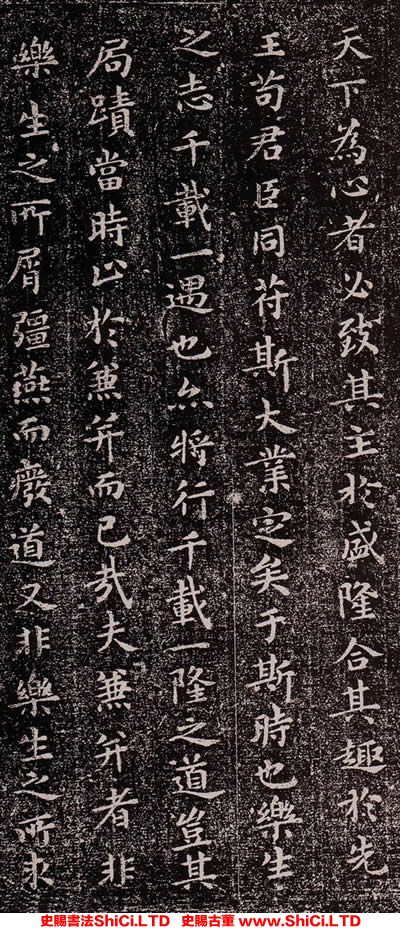 天下為心者必致其主於盛隆合其趣於先
王苟君臣同符斯大業定矣于斯時也樂生
之志千載一遇也亦將行千載一隆之道豈其
局蹟當時止於兼并而已哉夫兼并者非
樂生之所屑彊燕而廢道又非樂生之所求
史賜書法ShiCi.LTD 史賜古董 www.ShiCi.LTD